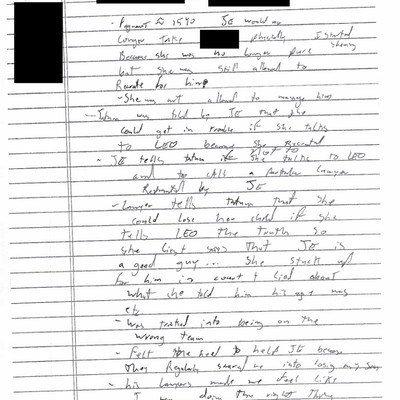 - Pregnant ≈ 15 yo JE would no
longer touch physically I started showing
Because she was no longer pure
but she was still allowed to
Recruit for him
- She was not allowed to massage him
- was told by JE that she
could get in trouble if she talks
to LEO because she Recruited
- JE tells if she talks to LEO
and to call a particular lawyer
Retained by JE
- Lawyer tells that she
could lose her child if she
tells LEO the truth so
she says that JE is
a good guy... She stuck up
for him in court & lied about
what she told him his age was
etc.
- was tricked into being on the
wrong team
- Felt the need to help JE because
they Regularly scared me into losing my
- his lawyers made me feel like
I was doing the right thing